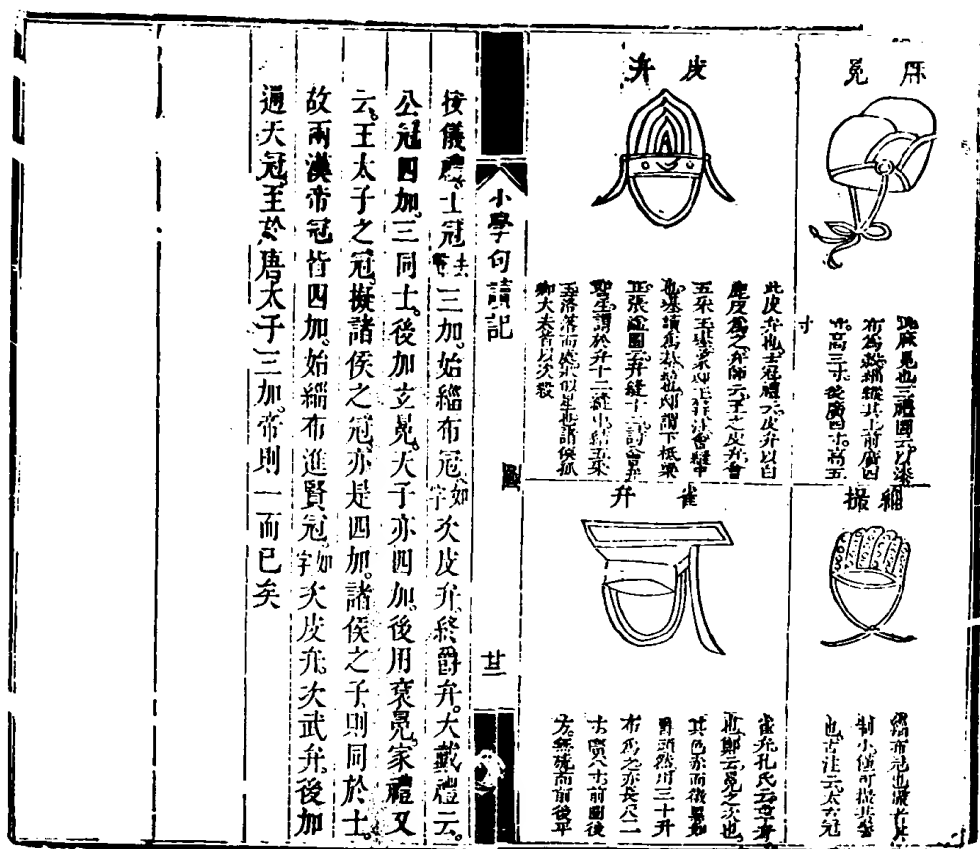 麻冕
麻冕也三禮圖云以漆
布為殼緇縰其上前廣四
寸高三寸後廣四寸高五
寸
皮弁
此皮弁也士冠禮云皮弁以白
鹿皮為之弁師云王之皮弁會
五采玉璂象邸玉笄注會縫中
也璂讀為綦結也邸謂下柢梁
正張鎰圖云弁縫十二詩會弁
如星謂於弁十二縫中結五采
玉落落而處狀似星也諸侯孤
卿大夫皆以次殺
緇撮
緇布冠也撮者其
制小僅可撮其髻
也古注云太古冠
雀弁
雀弁孔氏云
也鄭云冕之次也
其色赤而微黑如
爵頭然用三十升
布為之亦長尺二
寸廣八寸前圓後
方無旒而前後平
小學句讀記 圖 廿三
按儀禮士冠三加始緇布冠如字次皮弁終爵弁。大戴禮云。
公冠四加。三同士。後加玄冕。天子亦四加。後用袞冕。家禮又
云。王太子之冠。擬諸侯之冠。亦是四加。諸侯之子則同於士。
故兩漢帝冠皆四加。始緇布進賢冠。如字次皮弁。次武弁。後加
通天冠。至於唐太子三加。帝則一而已矣